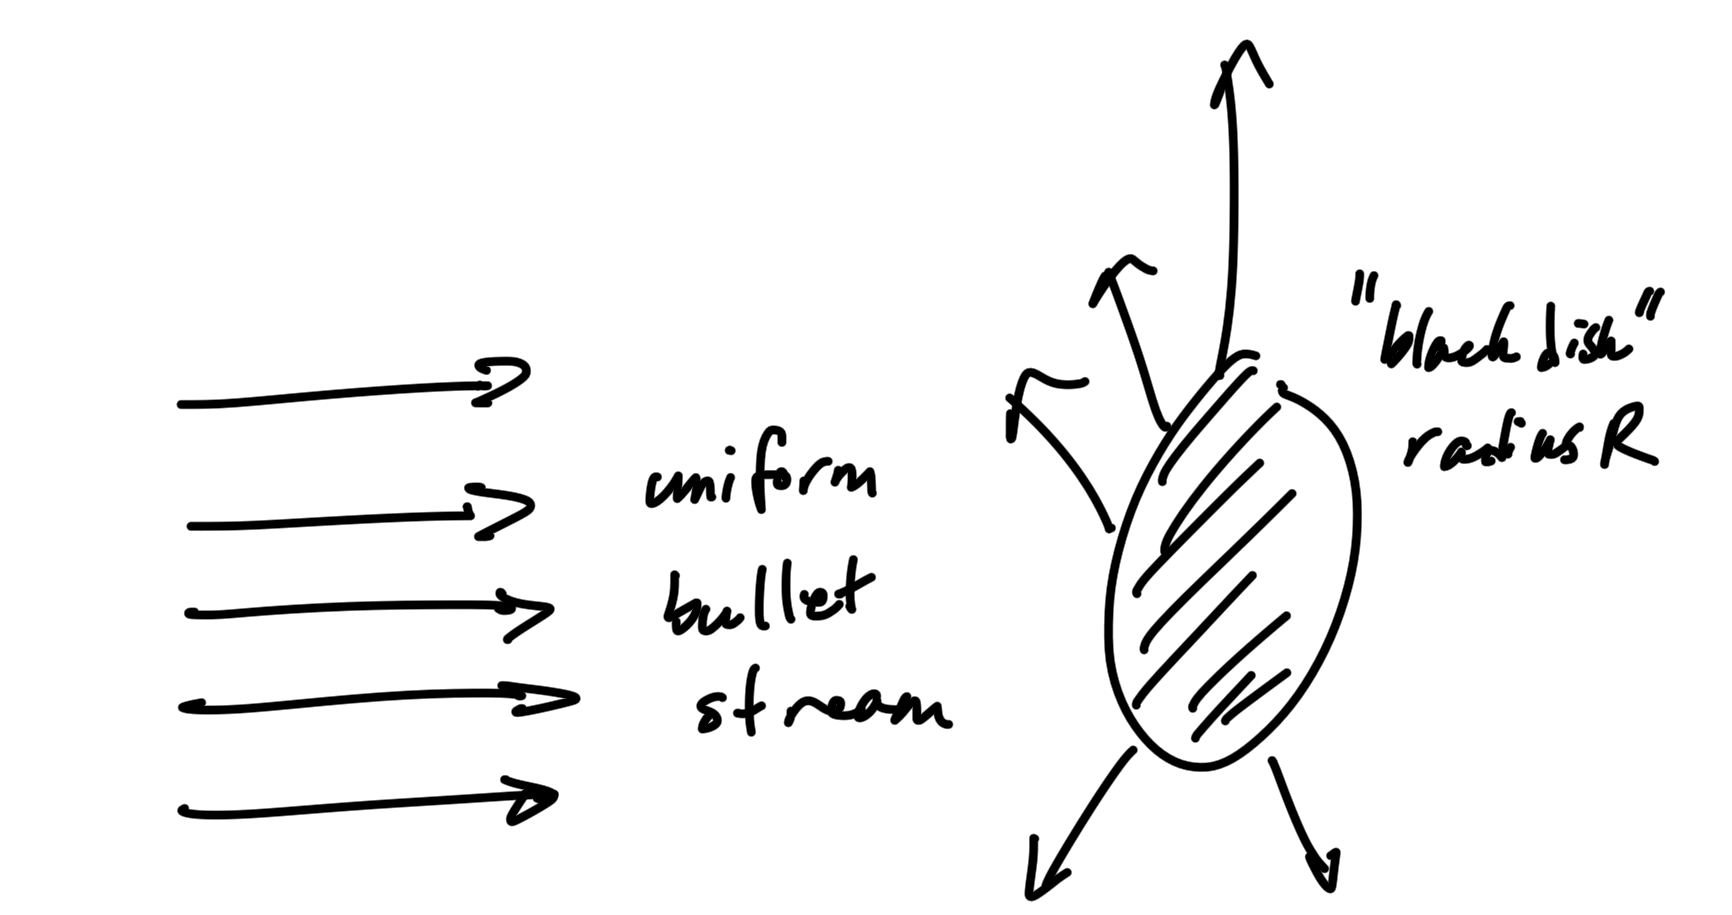 uniform
bullet
stream
"black disk"
radius R